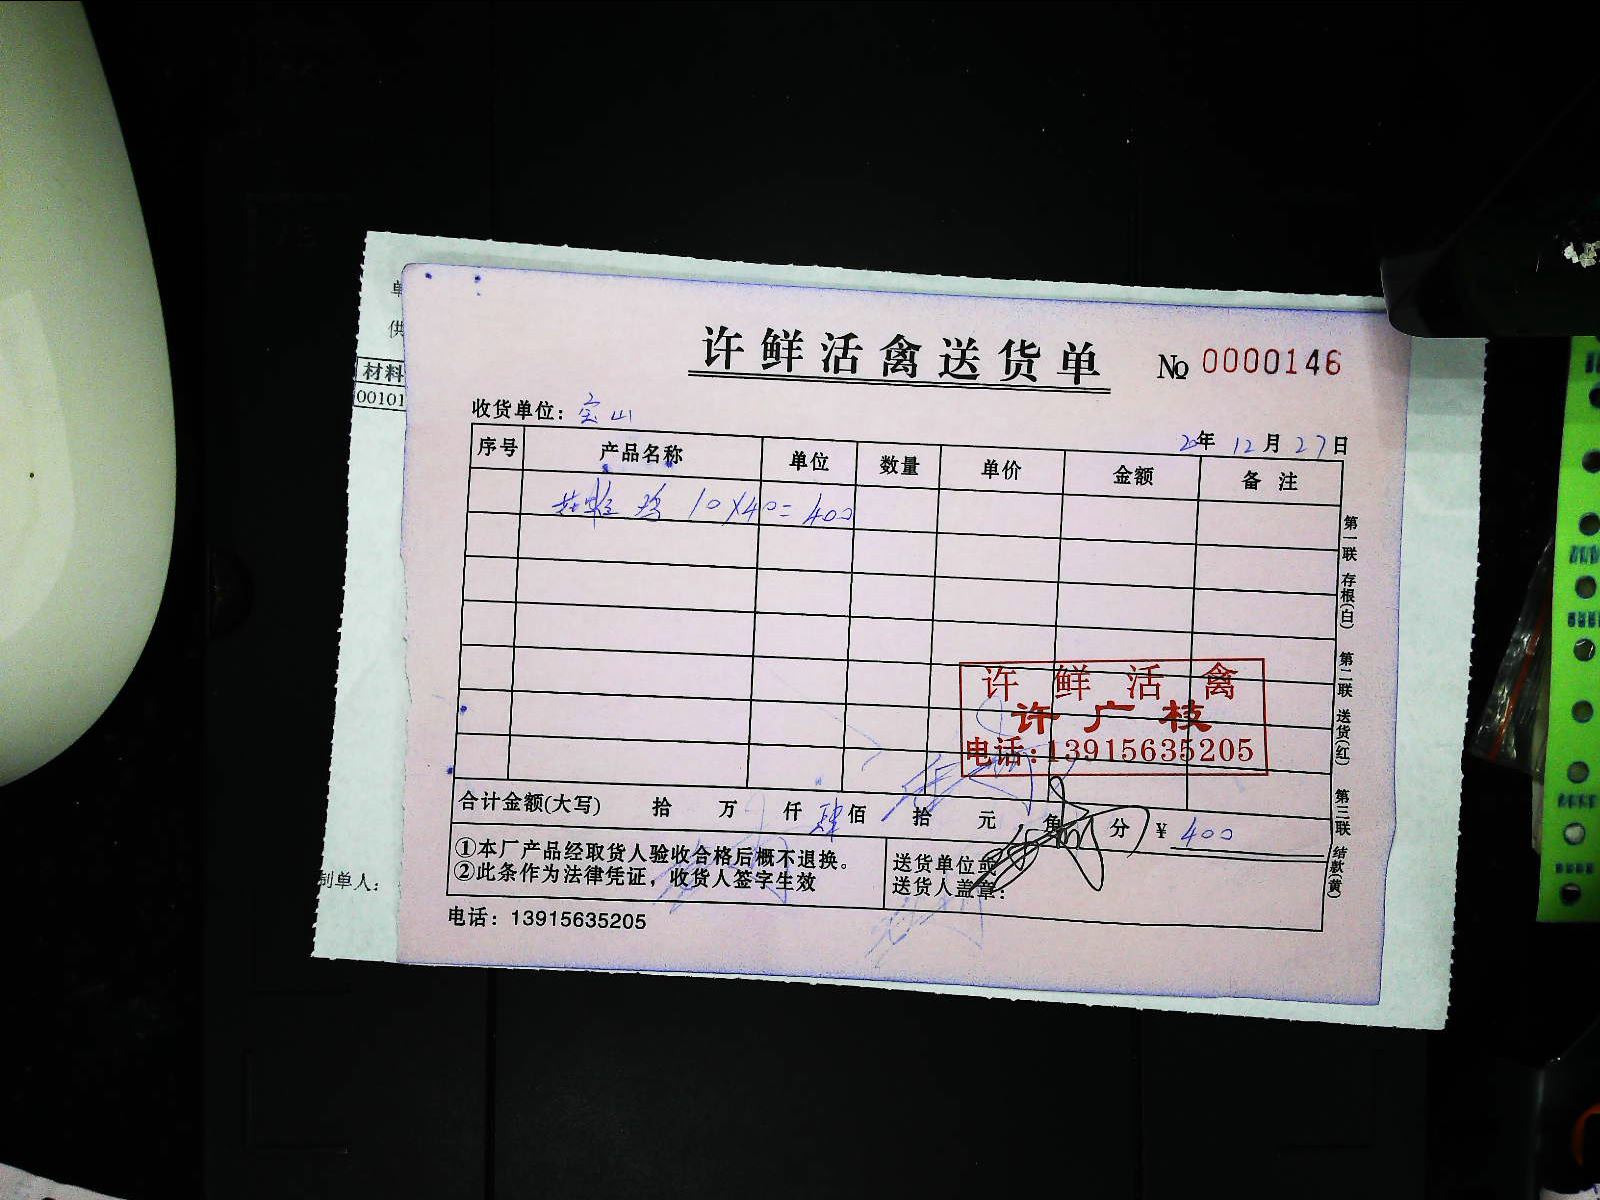 单
供
材料
00101
制单人：
许鲜活禽送货单
№ 0000146
收货单位：宝山
20年 12月 27日
序号 产品名称 单位 数量 单价 金额 备 注
鸡 10×40=400
许鲜活禽
许广枝
电话:13915635205
合计金额(大写) 拾 万 仟 肆佰 拾 元 角 分 ¥ 400
①本厂产品经取货人验收合格后概不退换。
②此条作为法律凭证，收货人签字生效
送货单位或
送货人盖章：
电话：13915635205
第一联 存根(白)
第二联 送货(红)
第三联 结款(黄)